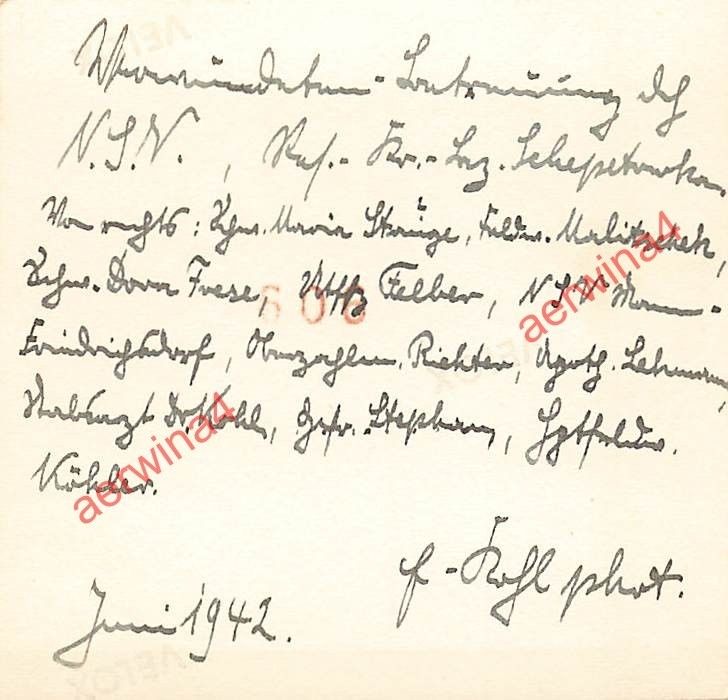 Verwundeten-Betreuung der
N.S.V., Res.-Kr.-Laz. Schepetowka.
Von rechts: Schw. Maria Stange, Feldw. Malitschek,
Schw. Dora Frese, Uffz Felber, N S V Mann-
606
Friedrichsdorf, Oberzahlm. Richter, Apoth. Lehmann,
Stabsarzt Dr. Kohl, Gefr. Stephan, Hptfeldw.
Köhler.
Kohl phot.
Juni 1942.
aerwina4
aerwina4
VELOX